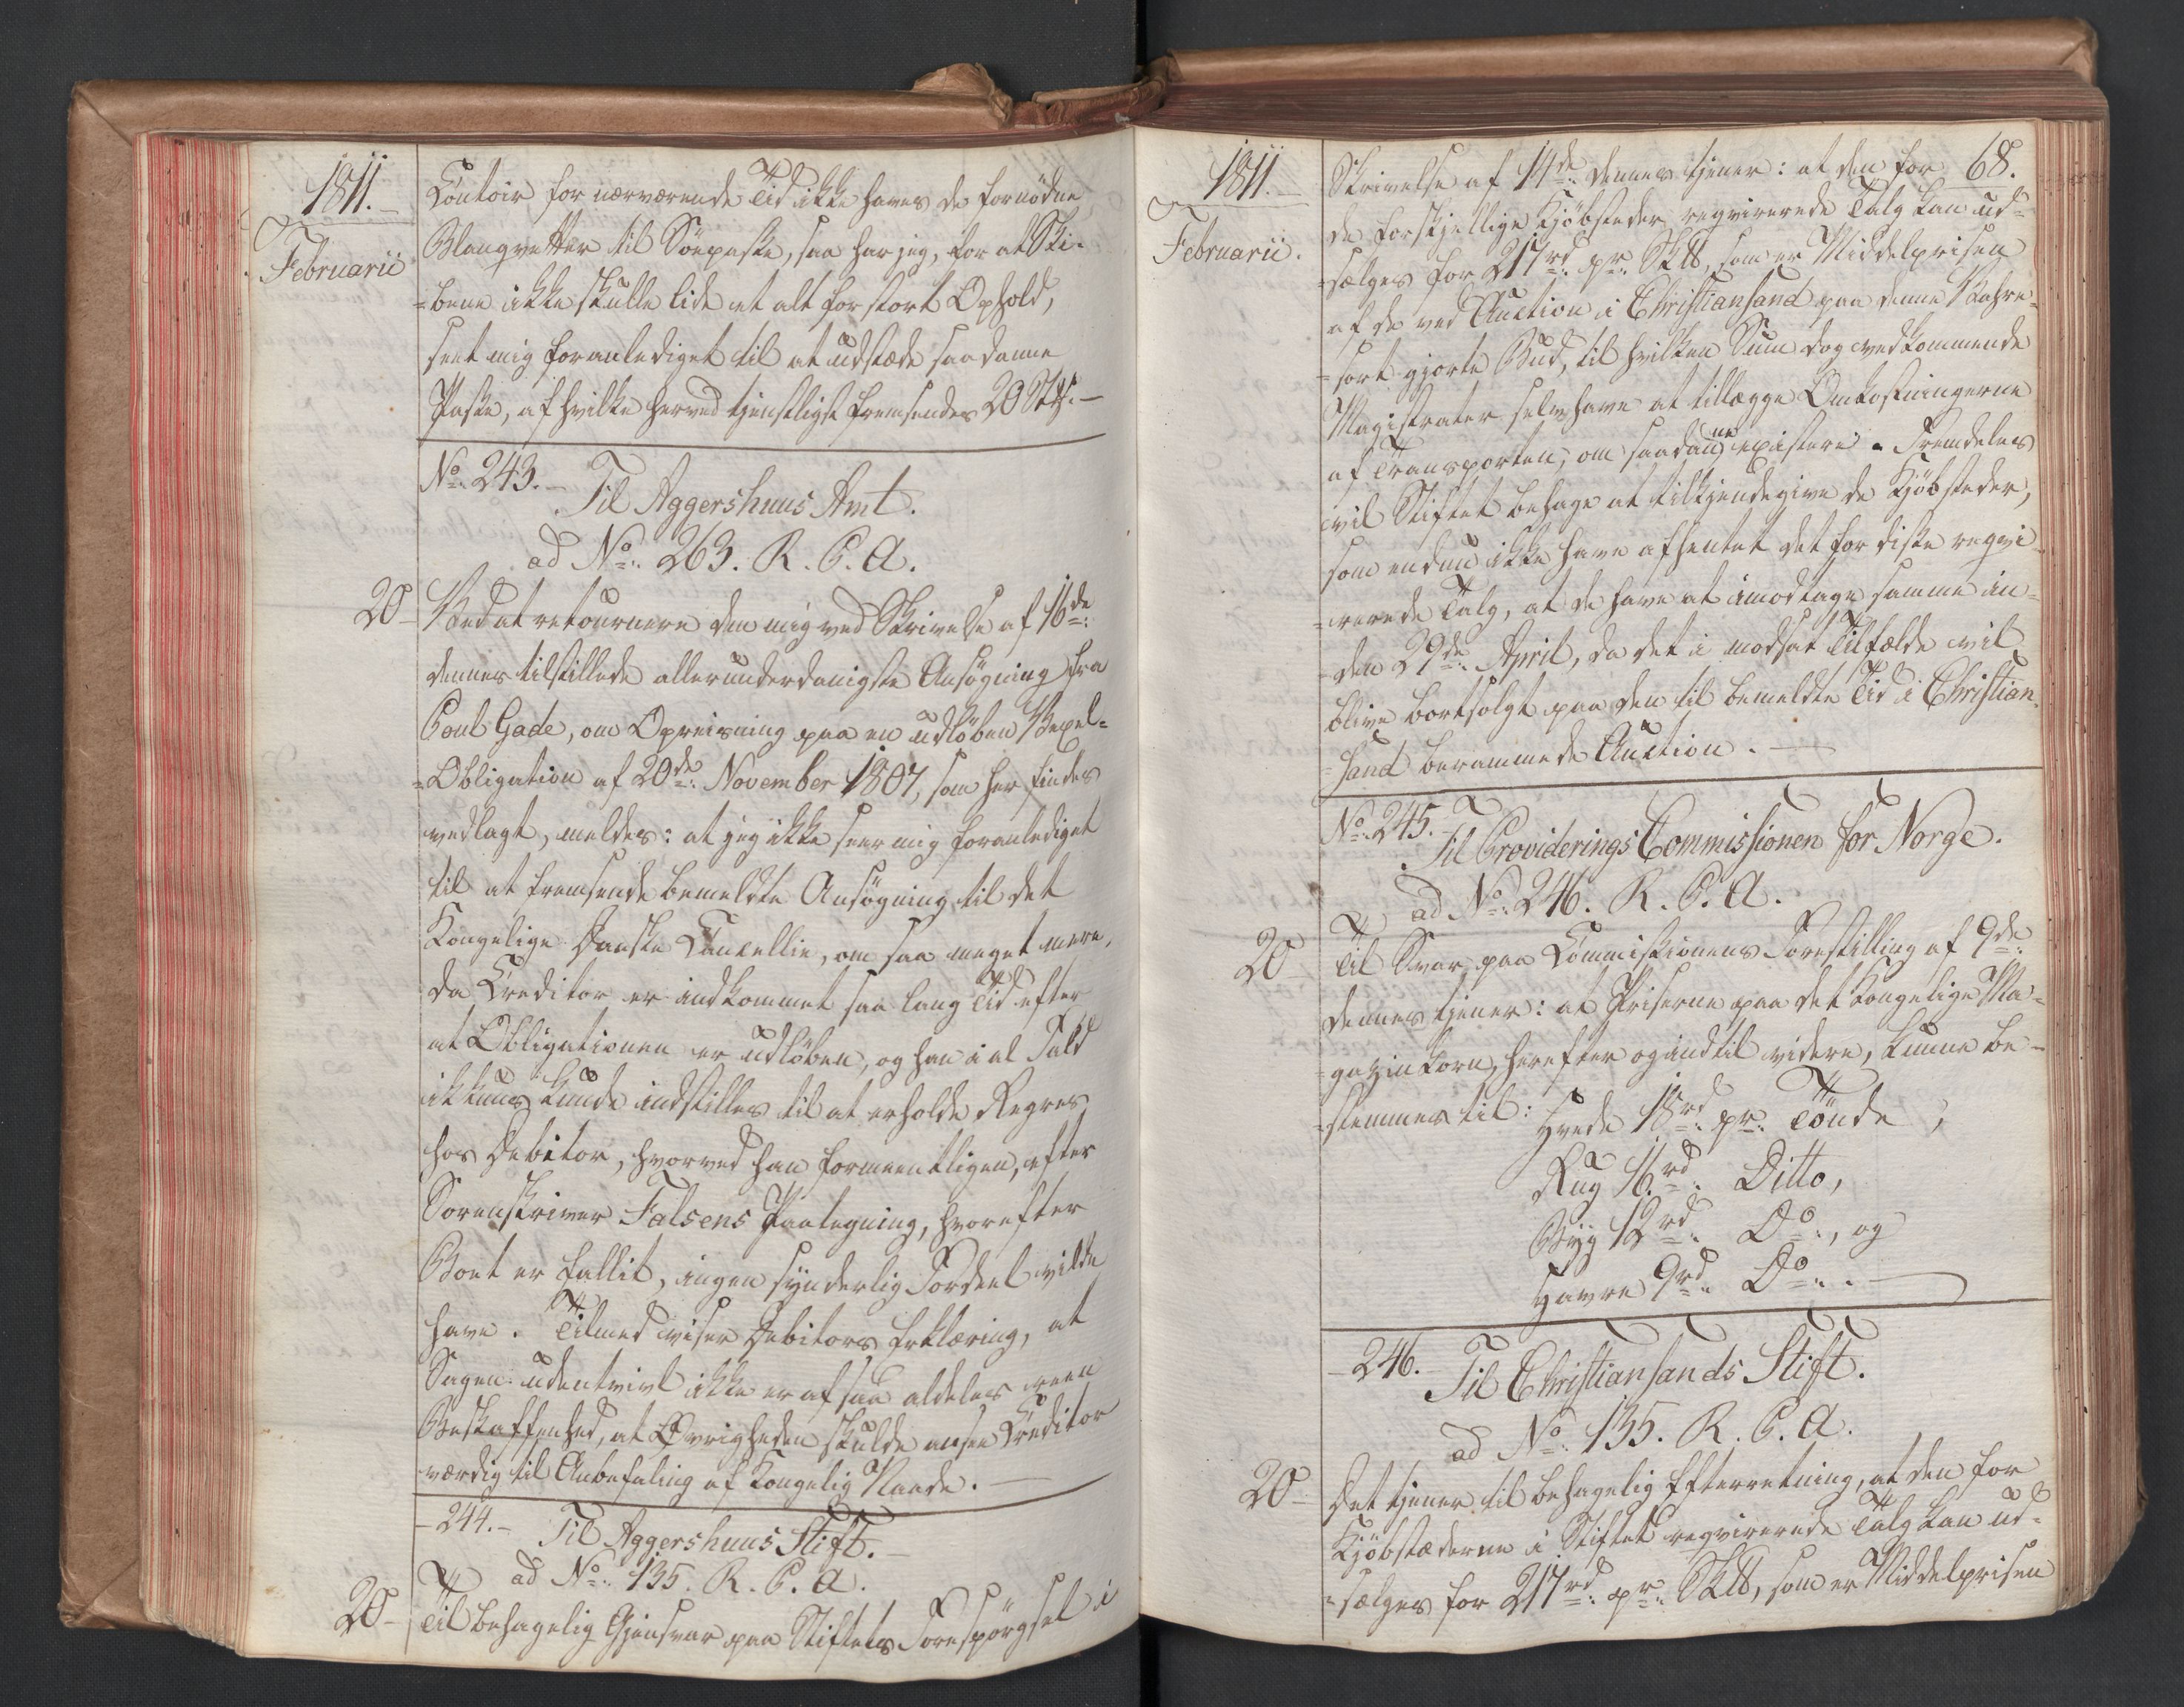 1811.
Februarii
Contoir for nærværende Tid ikke haves de fornödne
Blanqvetter til Söepasse, saa har jeg, for at Ski-
=bene ikke skulle lide et alt for stort Ophold,
seet mig foranlediget til at udstæde saadanne
Passe, af hvilke herved tjenstligst fremsendes 20 Stk.
No. 243.
Til Aggershuus Amt.
ad No. 263. R. P. A.
20
Ved at retournere den mig ved Skrivelse af 16de
dennes tilstillede allerunderdanigste Ansøgning fra
Poul Gade, om Opreisning paa en udløben Vexel-
=Obligation af 20de November 1807, som her findes
vedlagt, meldes: at jeg ikke seer mig foranlediget
til at fremsende bemeldte Ansøgning til det
Kongelige Danske Cancellie, om saa meget mere,
da Creditor er indkommet saa lang Tid efter
at Obligationen er udløben, og han i al Fald
ikkuns kunde indstilles til at erholde Regres
hos Debitor, hvorved han formeentligen, efter
Sorenskriver Falsens Paategning, hvorefter
Boet er fallit, ingen synderlig Fordeel vilde
have. Tilmed viser Debitors Erklæring, at
Sagen udentvivl ikke er af saa aldeles reen
Beskaffenhed, at Øvrigheden skulde ansee Creditor
værdig til Anbefaling af Kongelig Naade.
244.
Til Aggershuus Stift.
ad No. 135. R. P. A.
20
Til behagelig Gjensvar paa Stiftets Forespörgsel i
1811.
Februarii.
68.
Skrivelse af 14de dennes tjener: at den for
de forskjellige Kjöbsteder reqvirerede Talg kan ud-
=sælges for 217rd pr. Sk℔, som er Middelprisen
af de ved Auction i Christiansand paa denne Vahre-
=sort gjorte Bud, til hvilken Sum dog vedkommende
Magistrater selv have at tillægge Omkostningerne
af Transporten, om saadanne existere. Fremdeles
vil Stiftet behage at tilkjendegive de Kjöbsteder,
som endnu ikke have afhentet det for disse reqvi-
=rerede Talg, at de have at imodtage samme in-
=den 29de April, da det i modsat Tilfælde vil
blive bortsolgt paa den til bemeldte Tid i Christian-
=sand berammede Auction.
No. 245.
Til Providerings Commissionen for Norge.
ad No. 246. R. P. A.
20
Til Svar paa Commissionens Forestilling af 9de
dennes tjener: at Priserne paa det Kongelige Ma-
=gazinkorn, herefter og indtil videre, kunne be-
=stemmes til:
Hvede 18rd pr. Tönde,
Rug 16rd Ditto,
Byg 12rd Do., og
Havre 9rd Do.
246.
Til Christiansands Stift.
ad No. 135. R. P. A.
20
Det tjener til behagelig Efterretning, at den for
Kjöbstæderne i Stiftet reqvirerede Talg kan ud-
=sælges for 217rd pr. Sk℔, som er Middelprisen